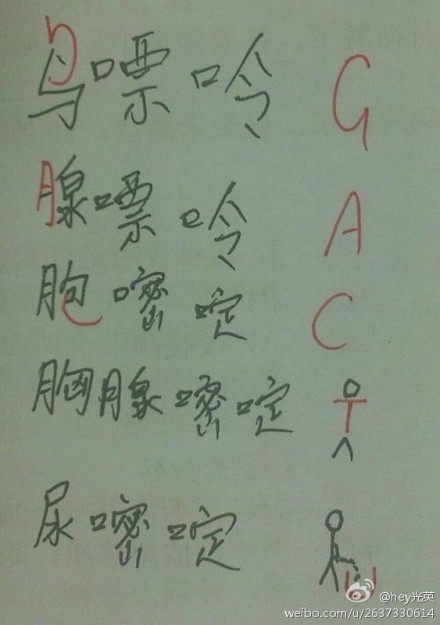 鸟嘌呤 G
腺嘌呤 A
胞嘧啶 C
胸腺嘧啶 T
尿嘧啶 U
@hey光英
weibo.com/u/2637330614